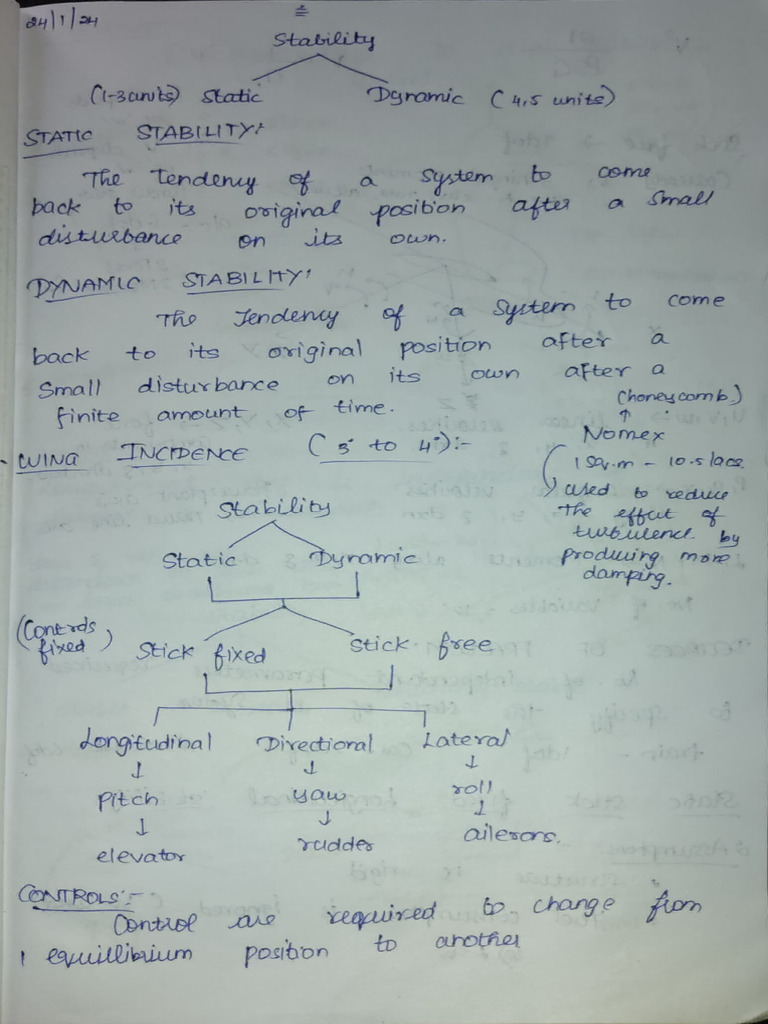 24/1/24
Stability
(1-3 units) Static Dynamic (4,5 units)
STATIC STABILITY:
The tendency of a system to come
back to its original position after a small
disturbance on its own.
DYNAMIC STABILITY:
The Tendency of a System to come
back to its original position after a
small disturbance on its own after a
finite amount of time.
(honeycomb)
↑
Nomex
1 sq.m - 10.5 lacs
used to reduce
the effect of
turbulence by
producing more
damping.
WING INCIDENCE (3° to 4°):-
Stability
Static Dynamic
(Controls fixed) Stick fixed stick free
Longitudinal Directional Lateral
↓ ↓ ↓
Pitch yaw roll
↓ ↓ ↓
elevator rudder ailerons.
CONTROLS:-
Control are required to change from
1 equillibrium position to another